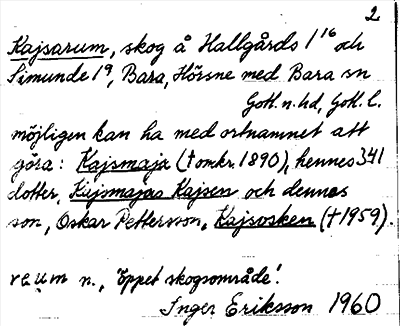 2
Kajsarum, skog å Hallgårds 1¹⁶ och
Simunde 1⁹, Bara, Hörsne med Bara sn
Gotl. n. hd, Gotl. l.
möjligen kan ha med ortnamnet att
göra: Kajsmaja († omkr. 1890), hennes 341
dotter, Kajsmajas Kajsen och dennes
son, Oskar Pettersson, Kajsosken (†1959).
raum n., 'öppet skogsområde'.
Inger Eriksson 1960